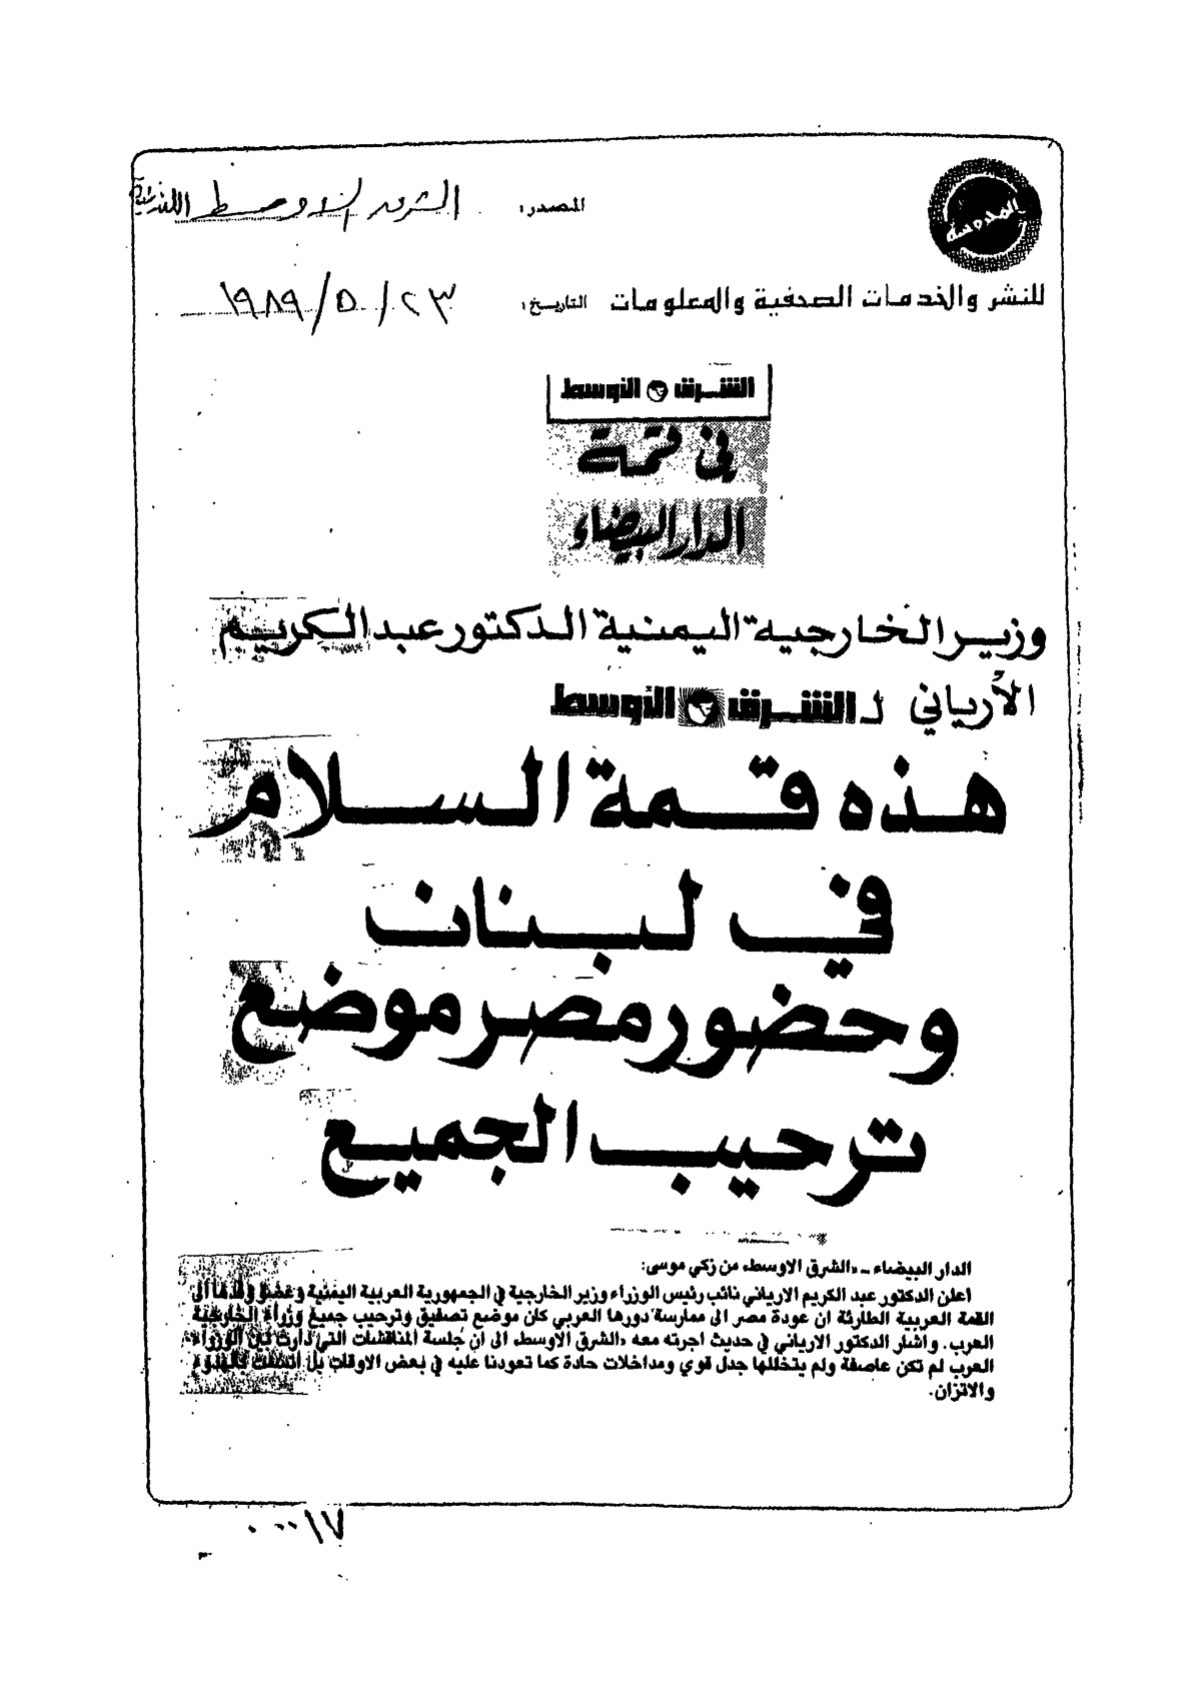 المحروسة
المصدر: الشرق الاوسط اللندنية
للنشر والخدمات الصحفية والمعلومات التاريخ: ٢٣/٥/١٩٨٩
الشرق الأوسط
في قمة
الدار البيضاء
وزير الخارجية اليمنية الدكتور عبد الكريم
الأرياني لـ الشرق الأوسط
هذه قمة السلام
في لبنان
وحضور مصر موضع
ترحيب الجميع
الدار البيضاء ـ «الشرق الاوسط» من زكي موسى:
اعلن الدكتور عبد الكريم الارياني نائب رئيس الوزراء وزير الخارجية في الجمهورية العربية اليمنية وعضو وفدها الى
القمة العربية الطارئة ان عودة مصر الى ممارسة دورها العربي كان موضع تصفيق وترحيب جميع وزراء الخارجية
العرب. واشار الدكتور الارياني في حديث اجرته معه «الشرق الاوسط» الى ان جلسة المناقشات التي دارت بين الوزراء
العرب لم تكن عاصفة ولم يتخللها جدل قوي ومداخلات حادة كما تعودنا عليه في بعض الاوقات بل اتسمت بالهدوء
والاتزان.
٠٠٠١٧